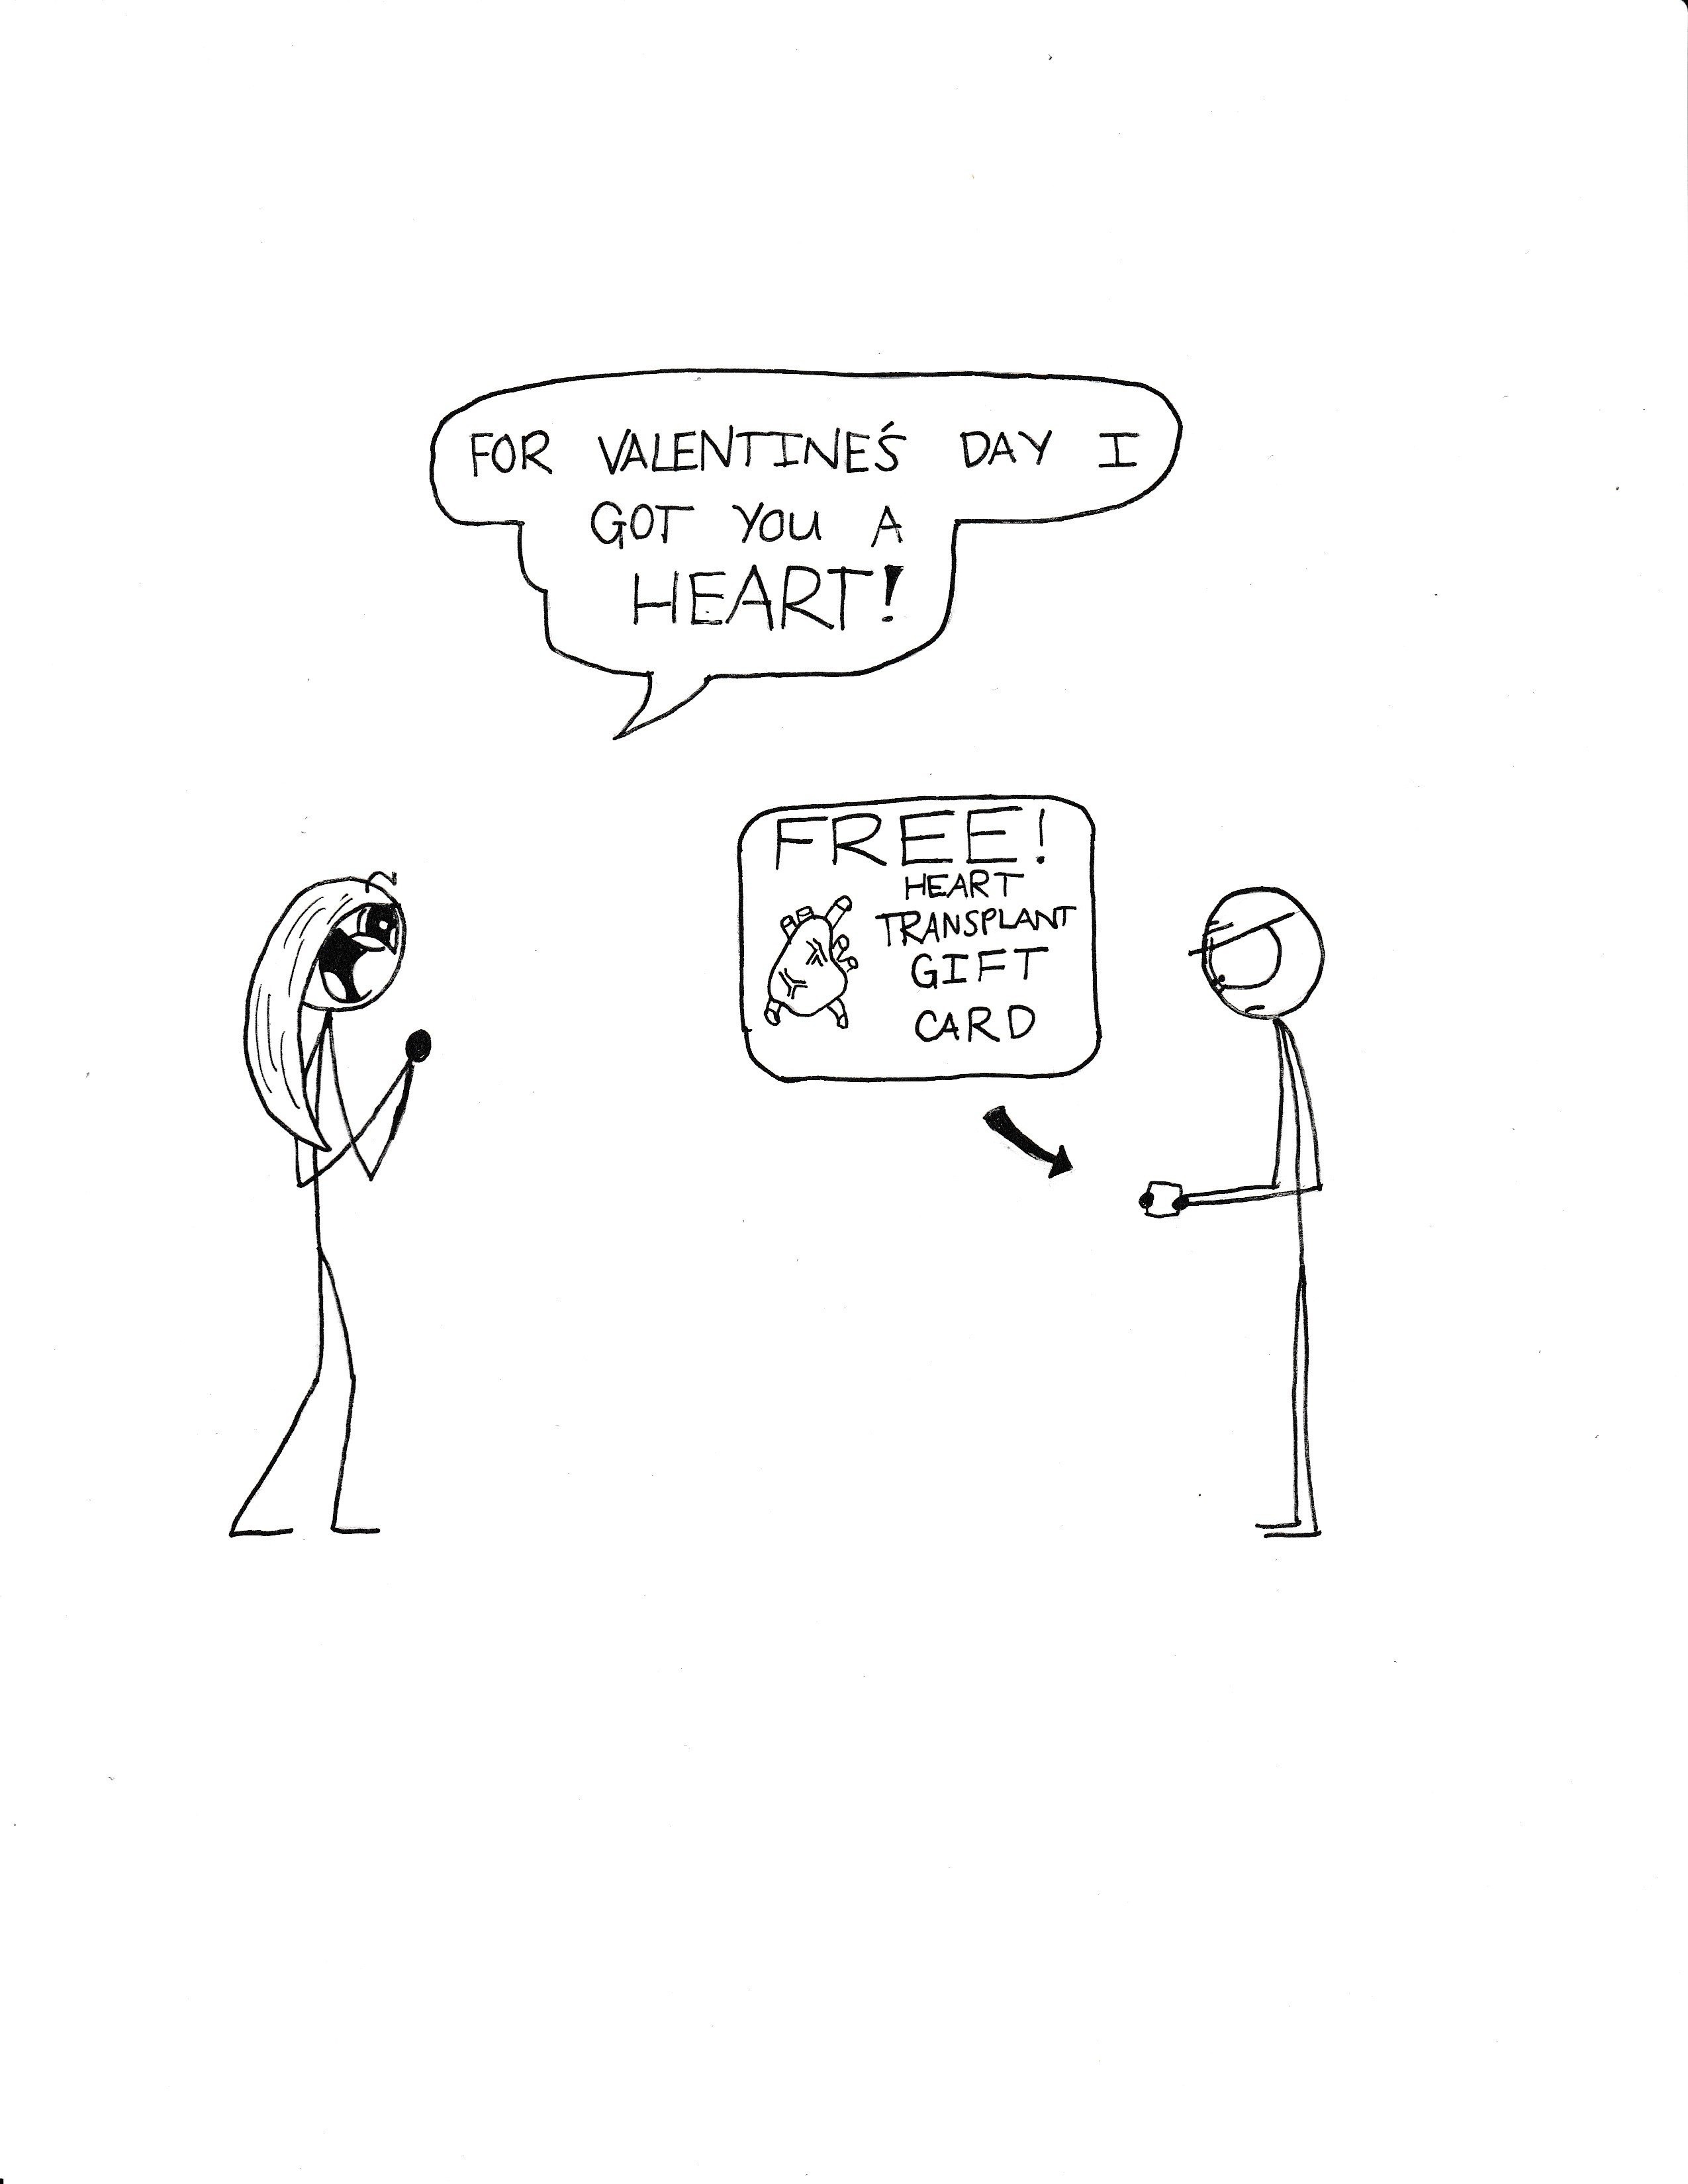 FOR VALENTINE'S DAY I
GOT YOU A
HEART!
FREE!
HEART
TRANSPLANT
GIFT
CARD